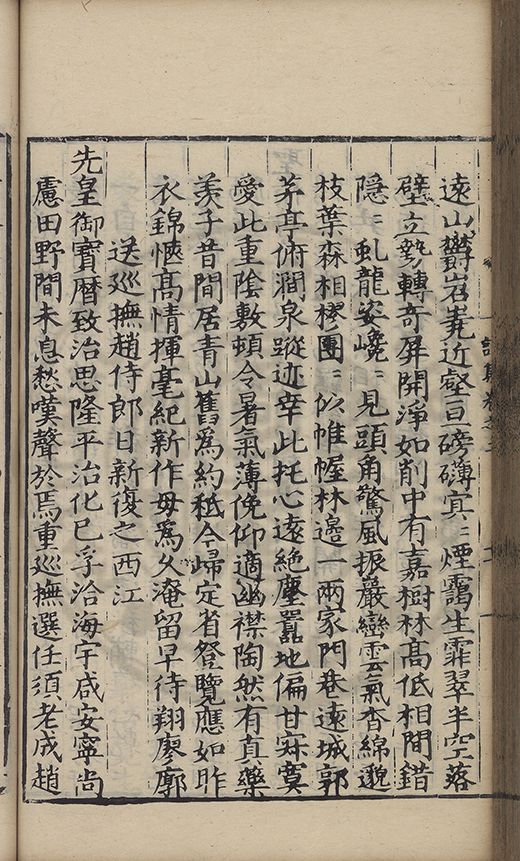 遠山欝岧嶤近壑亘磅礴冥〻煙靄生霏翠半空落
壁立勢轉奇屏開淨如削中有嘉樹林髙低相間錯
隱〻虬龍姿嶢〻見頭角驚風振巖巒雲氣杳綿邈
枝葉森相樛團〻似帷幄林邊一兩家門巷遠城郭
茅亭俯澗泉蹤迹幸此托心遠絶塵囂地偏甘寂寞
愛此重陰敷頓令暑氣薄俛仰適幽襟陶然有真樂
羡子昔間居青山舊為約秪今歸定省登覽應如昨
衣錦愜髙情揮毫紀新作毋為久淹留早待翔廖廓
送巡撫趙侍郎日新復之西江
先皇御寶曆致治思隆平治化已孚洽海宇咸安寧尚
慮田野間未息愁嘆聲於焉重巡撫選任須老成趙